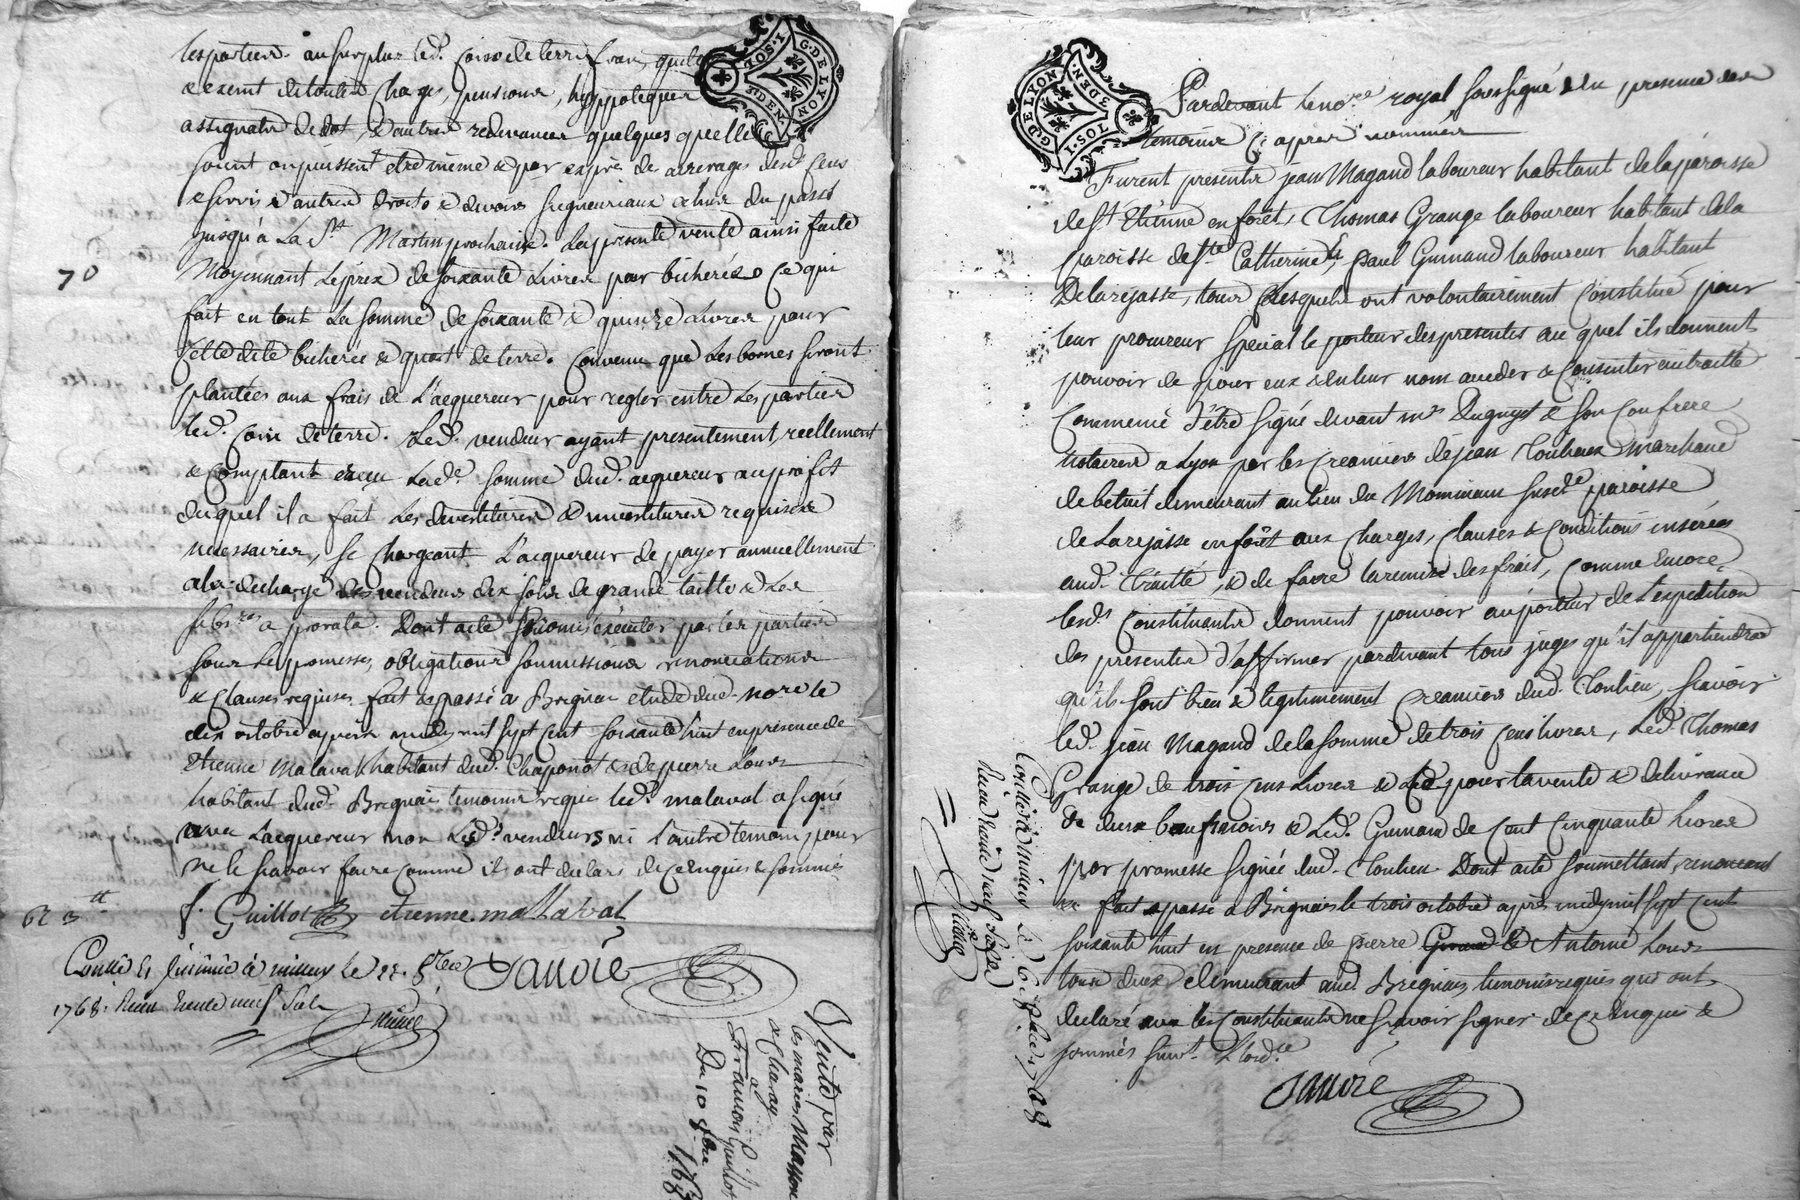 les parties. au surplus led. coin de terre franc, quitte
& exemt de toutes charges, pensions, hyppoteques
assignats de dot, & autres redevances quelques quelles
soint ou puissent etre même & par exprès de arrerages desd. cens
& servis & autres droits & devoirs seigneuriaux echus du passé
jusqu'à La St. Martin prochaine. La presente vente ainsi faite
70
Moyennant Le prix de soixante Livres par bicherée ce qui
fait en tout La somme de soixante & quinze Livres, pour
Cette dite bicherée & quart de terre. Convenu que Les bornes seront
plantées aux frais de L'acquereur pour regler entre Les parties
led. coin de terre. Led. vendeur ayant presentement, reellement
& comptant receu Lade. somme dud. acquereur au profit
duquel il a fait Les devestitures & investitures requises
necessaires, se chargeant L'acquereur de payer annuellement
a la decharge des vendeurs dix sols de grande taille & Les
a prorata. Dont acte promis executer par les parties
sous Les promesses, obligations soumissions renonciations
& clauses requises. fait & passé a Brignais etude dud. no.re le
dix octobre après midy mil sept cent soixante huit en presence de
Etienne Malaval habitant dud. Chaponot & de pierre Louis
habitant dud. Brignais temoins requis led. malaval a signé
avec Lacquereur non Lesds. vendeurs ni L'autre temoin pour
ne le scavoir faire comme ils ont declaré de ce enquis & sommés
f. Guillot etienne mallaval
Janoré
Con.lé & insinué à le 22. 8bre
1768. Reçu trente neuf sols
Vente par
les mariés Masson
& Charay
a
François Guillot
Du 10 8bre
1768
G. DE LYON
1. SOL
3. DEN.
G. DE LYON
3. DEN.
1. SOL
Pardevant le no.re royal soussigné & en presence des
temoins cy après nommés
Furent presents jean Magand laboureur habitant de la paroisse
de St. Etienne en forêt, Thomas Grange laboureur habitant de la
paroisse de Ste Catherine, & paul Guinand laboureur habitant
De larejasse, tous Lesquels ont volontairement Constitué pour
leur procureur special le porteur des presentes au quel ils donnent
pouvoir de pour eux & en leur nom acceder & Consentir au traitté
Commencé d'être signé devant me Duguyet & son Confrere
notaires a Lyon par les creanciers de jean Marchand
de betail demeurant au lieu du susde paroisse
de Larejasse en forêt aux charges, clauses & conditions inserées
aud. traitté, & de faire la remise des frais, comme encore
lesds Constituants donnent pouvoir au porteur de L'expedition
des presentes d'affirmer pardevant tous juges qu'il appartiendra
qu'ils sont bien & legitimement creanciers dud. scavoir
led. jean Magand de la somme de trois cens livres, Led. Thomas
Grange de trois cens Livres & pour la vente & delivrance
de deux boeufs & Led. Guinand de cent cinquante Livres
par promesse signée dud. Dont acte soumettant, renonceant
& fait & passé a Brignais le trois octobre après midy mil sept cent
soixante huit en presence de pierre & Antoine Louis
tous deux demeurant aud. Brignais, temoins requis qui ont
declaré avec les constituants ne scavoir signer de ce enquis &
sommés suivt. L'ord.ce
Janoré
Con.lé & insinué le 6. 8bre 1768
Reçu trente neuf sols